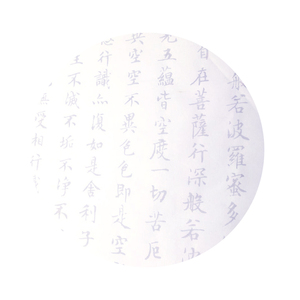 般若波羅蜜多
自在菩薩行深般若波
見五蘊皆空度一切苦厄
異空空不異色色即是空
受想行識亦復如是舍利子
生不滅不垢不淨不
無受想行